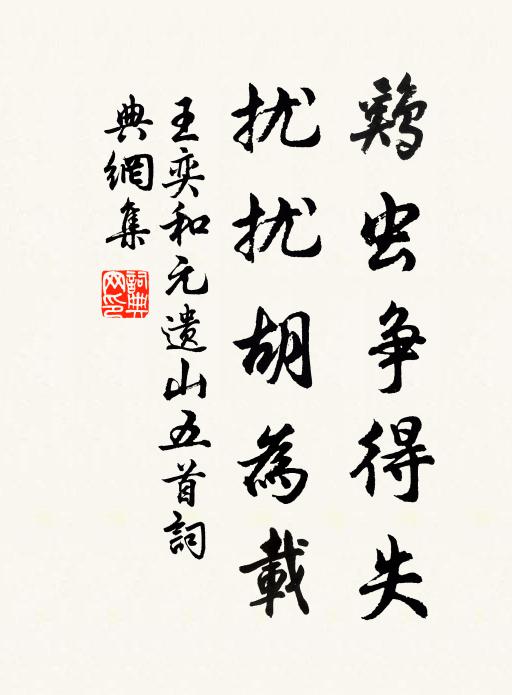 鷄虫争得失
扰扰胡為載
王奕和元遺山五首詞
典網集
詞典
网印